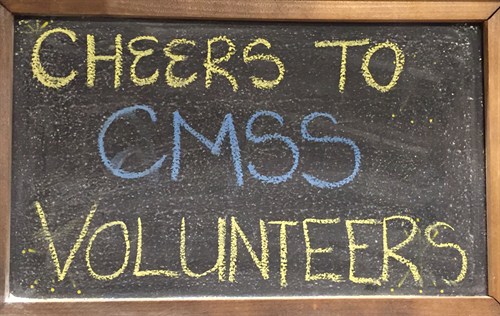 CHEERS TO
CMSS
VOLUNTEERS